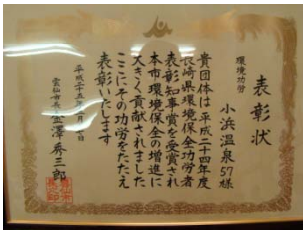 表彰状
環境功労
小浜温泉57様
貴団体は平成二十四年度
長崎県環境保全功労者
表彰知事賞を受賞され
本市環境保全の増進に
大きく貢献されました
ここにその功労をたたえ
表彰いたします
平成二十五年 月 日
雲仙市長 金澤秀三郎